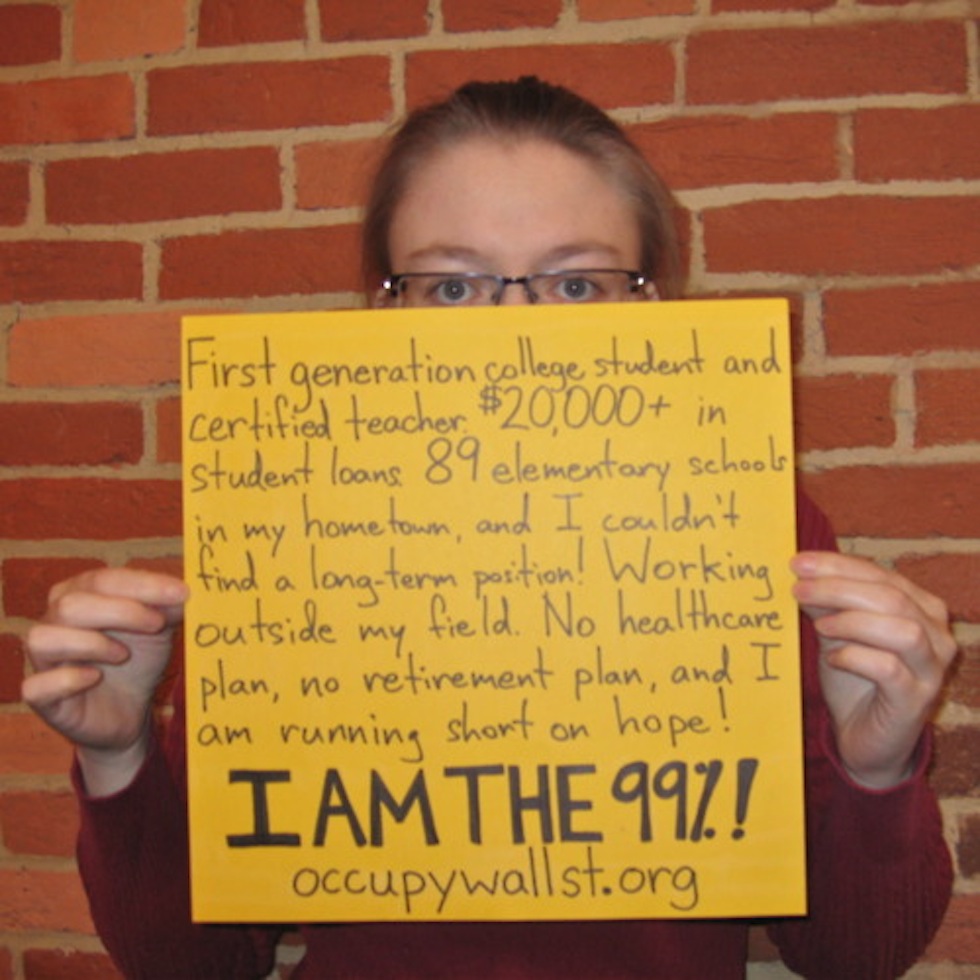 First generation college student and
certified teacher. $20,000+ in
student loans. 89 elementary schools
in my hometown, and I couldn't
find a long-term position! Working
outside my field. No healthcare
plan, no retirement plan, and I
am running short on hope!
I AM THE 99%!
occupywallst.org